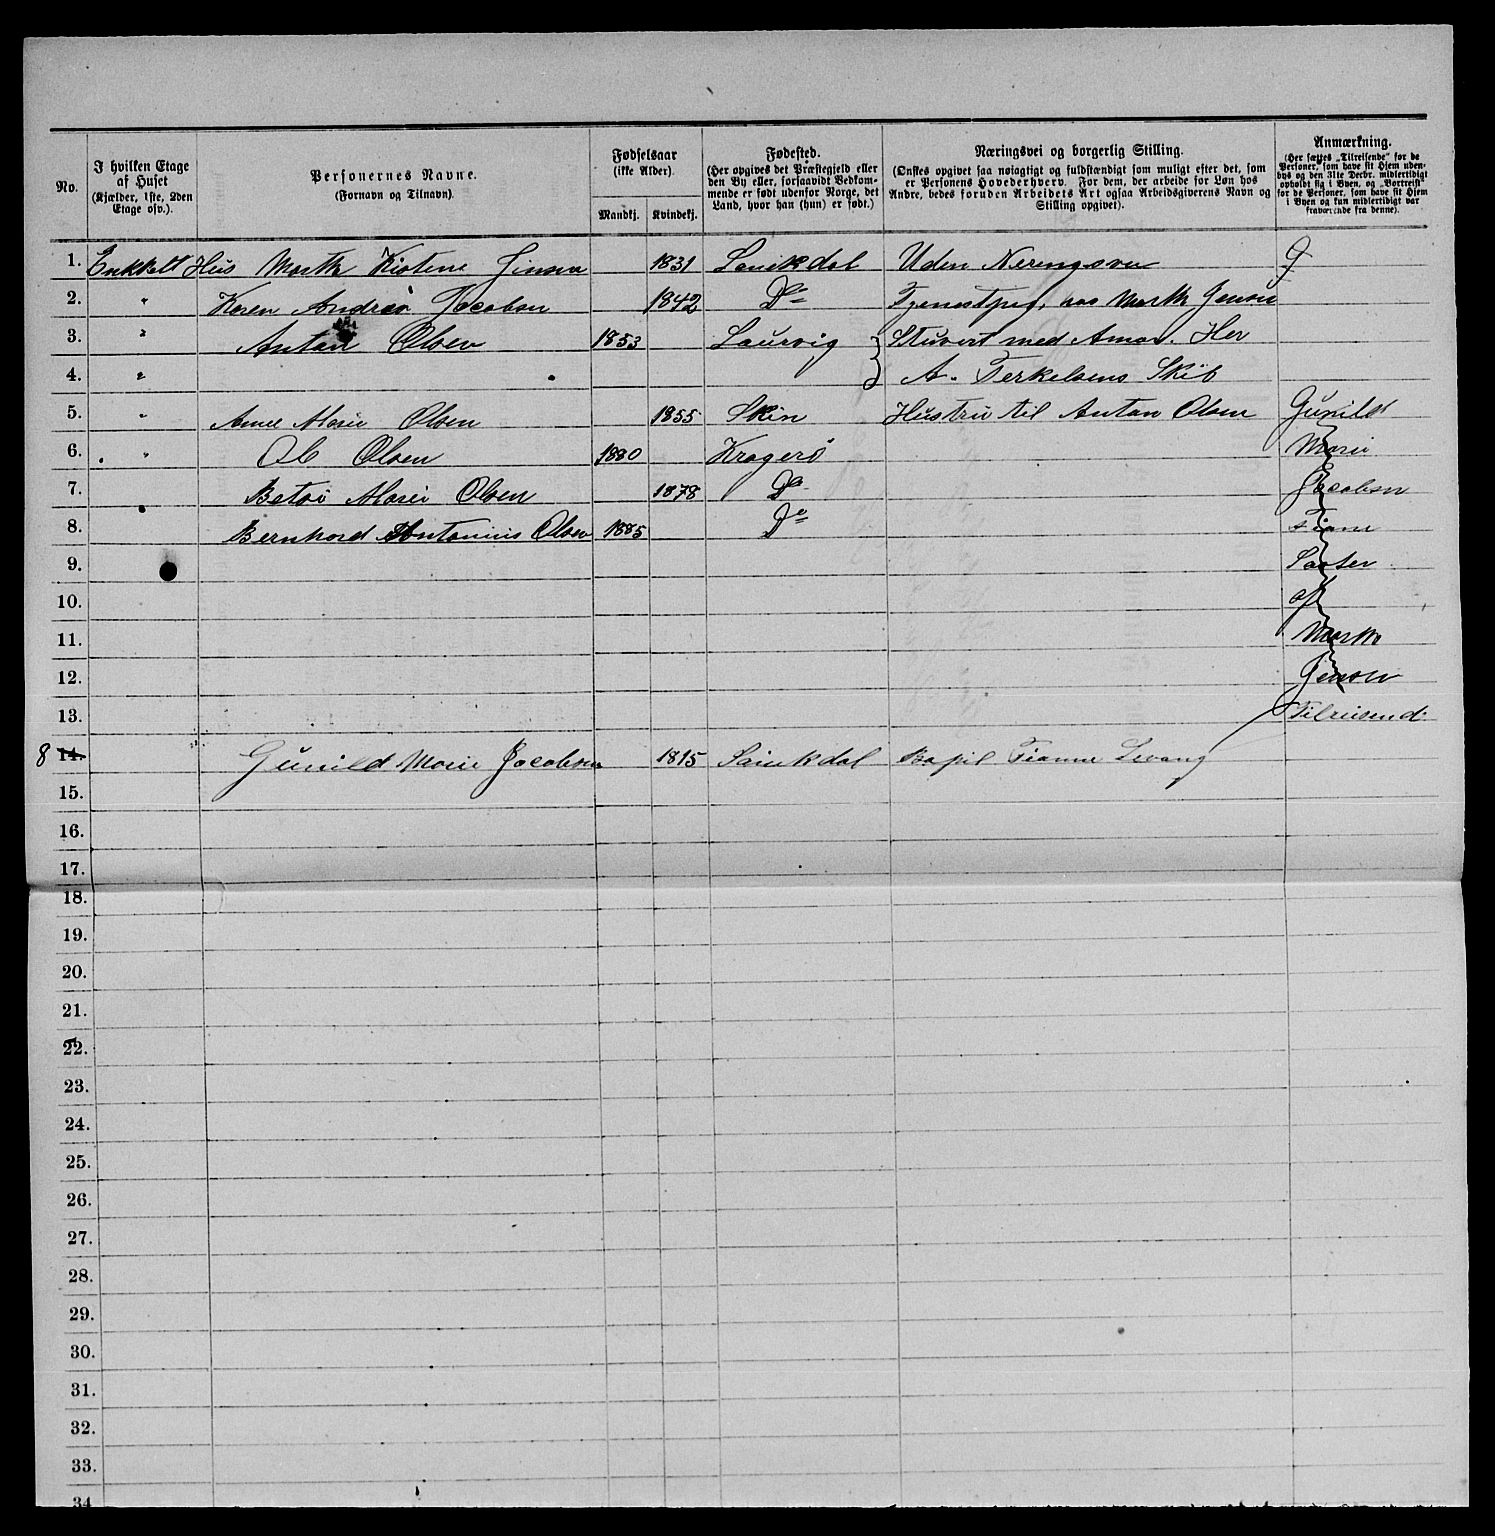 No.
I hvilken Etage af Huset
(Kjælder, 1ste, 2den Etage osv.).
Personernes Navne.
(Fornavn og Tilnavn).
Fødselsaar
(ikke Alder).
Mandkj.
Kvindekj.
Fødested.
(Her opgives det Præstegjeld eller
den By eller, forsaavidt Vedkom-
mende er født udenfor Norge, det
Land, hvor han (hun) er født.)
Næringsvei og borgerlig Stilling.
(Ønskes opgivet saa nøiagtigt og fuldstændigt som muligt efter det, som
er Personens Hovederhverv. For dem, der arbeide for Løn hos
Andre, bedes foruden Arbeidets Art ogsaa Arbeidsgiverens Navn og
Stilling opgivet).
Anmærkning.
(Her sættes „Tilreisende" for de
Personer, som have sit Hjem uden-
bys og den 31te Decbr. midlertidigt
opholdt sig i Byen, og „Bortreist"
for de Personer, som have sit Hjem
i Byen og kun midlertidigt var
fraværende fra denne).
1. Enkkelt Hus Marthe Kistene Jinsen 1831 Sanikdal Uden Neringsvei
2. " Karen Andrea Jacobsen 1842 Do Tjenestpig. hos Marth Jensen
3. " Antan Olsen 1853 Laurvig Stuvert med Amas. Her
4. " A. Terkelsens Skib
5. " Anne Marie Olsen 1855 Skin Hustru til Antan Olsen Gunild
6. " Ole Olsen 1880 Kragerö Marie
7. Betsi Marie Olsen 1878 Do Jacobsen
8. Bernhard Antonius Olsen 1885 Do
9. Søster
10. af
11. Marthe
12. Jensen
13. Tilreisend
8 14. Gunild Marie Jacobsen 1815 Sanikdal
15.
16.
17.
18.
19.
20.
21.
22.
23.
24.
25.
26.
27.
28.
29.
30.
31.
32.
33.
34